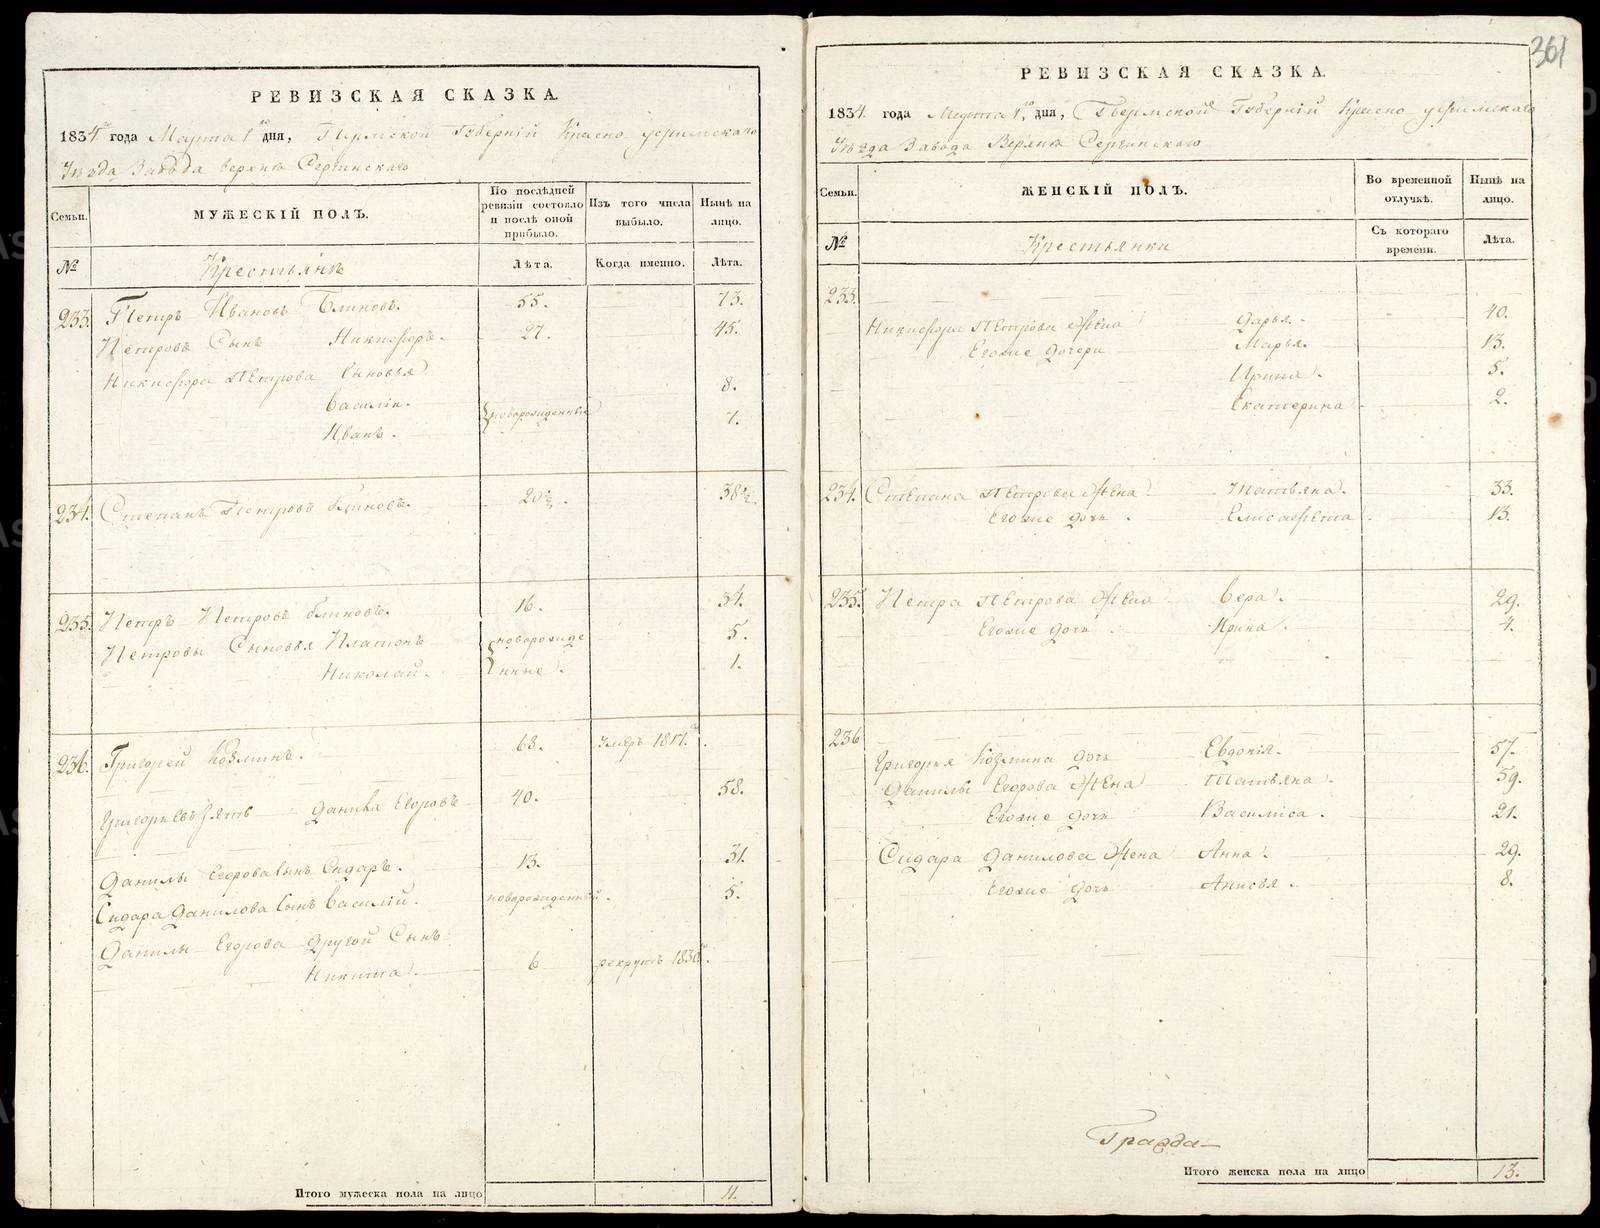 РЕВИЗСКАЯ СКАЗКА.
1834 года Марта 1го дня, Пермской Губерніи Красно уфимскаго
Уезда Завода верхне Сергинскаго
Семьи.
МУЖЕСКІЙ ПОЛЪ.
По послѣдней ревизіи состояло и послѣ оной прибыло.
Изъ того числа выбыло.
Нынѣ на лицо.
№
Крестьяне
Лѣта.
Когда именно.
Лѣта.
233. Петръ Ивановъ Блиновъ. 55. 73.
Петровъ Сынъ Никифоръ. 27. 45.
Никифора Петрова Сыновья
Василій. новорожденные 8.
Иванъ. 7.
234. Степанъ Петровъ Блиновъ. 20½. 38½.
235. Петръ Петровъ Блиновъ. 16. 34.
Петровы Сыновья Платонъ новорожде 5.
Николай. нные. 1.
236. Григорей Козминъ. 68. Умеръ 1817го.
Григорьевъ Зять Данила Егоровъ 40. 58.
Данилы Егорова Сынъ Сидаръ. 13. 31.
Сидара Данилова Сынъ Василій. новорожденный. 5.
Данилы Егорова другой Сынъ
Никита. 6 рекрутъ 1830го.
Итого мужеска пола на лицо 11.
361
РЕВИЗСКАЯ СКАЗКА.
1834 года Марта 1го дня, Пермской Губерніи Красно уфимскаго
Уезда Завода Верхне Сергинскаго
Семьи.
ЖЕНСКІЙ ПОЛЪ.
Во временной отлучкѣ.
Нынѣ на лицо.
№
Крестьянки
Съ котораго времени.
Лѣта.
233.
Никифора Петрова Жена Дарья. 40.
Егоже дочери Марья. 13.
Ирина. 5.
Екатерина 2.
234. Степана Петрова Жена Татьяна. 33.
Егоже дочь. Елисавета 13.
235. Петра Петрова Жена Вера. 29.
Егоже дочь. Ирина. 4.
236.
Григорья Козмина дочь Евдокія. 57.
Данилы Егорова Жена Татьяна. 59.
Егоже дочь Василиса. 21.
Сидара Данилова Жена Анна. 29.
Егоже дочь Анисья. 8.
Итого женска пола на лицо 13.